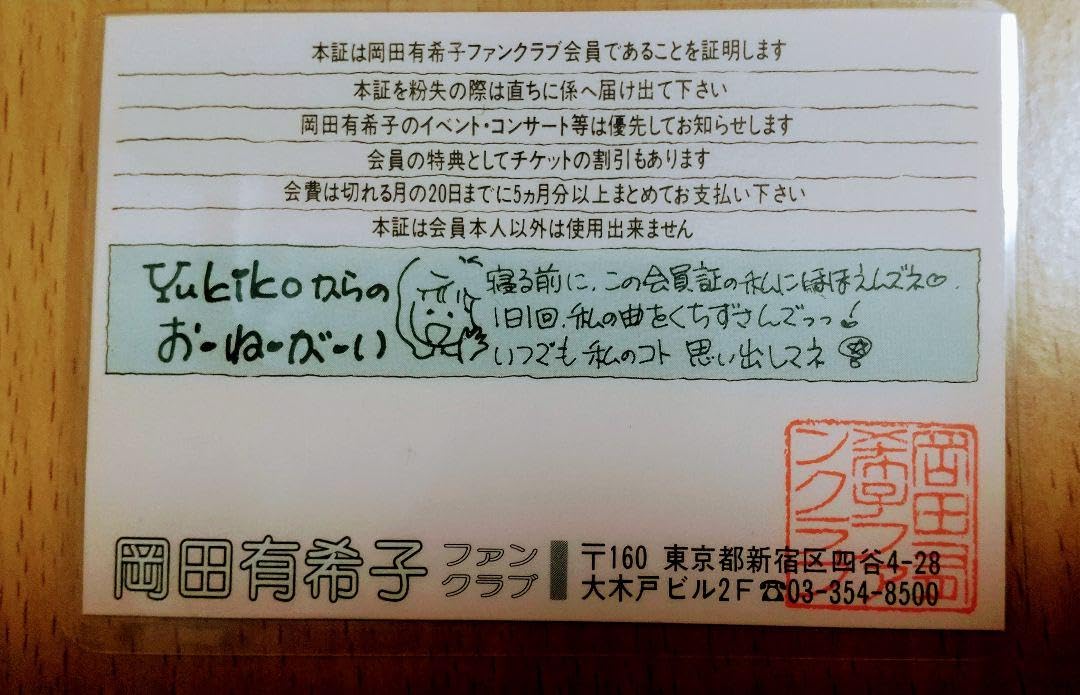 本証は岡田有希子ファンクラブ会員であることを証明します
本証を粉失の際は直ちに係へ届け出て下さい
岡田有希子のイベント・コンサート等は優先してお知らせします
会員の特典としてチケットの割引もあります
会費は切れる月の20日までに5ヵ月分以上まとめてお支払い下さい
本証は会員本人以外は使用出来ません
Yukikoからの
お-ね-が-い
寝る前に、この会員証の私にほほえんズネ♡.
1日1回、私の曲をくちずさんでっっ!
いつでも 私のコト 思い出しマネ
岡田有希子 ファンクラブ
〒160 東京都新宿区四谷4-28
大木戸ビル2F ☎03-354-8500
岡田有
希子ファ
ンクラ